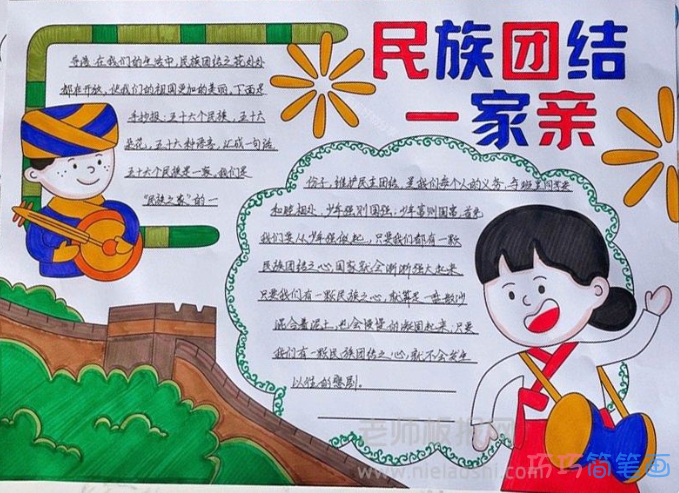 民族团结
一家亲
导语:在我们的生活中,民族团结之花处处
都在开放,使我们的祖国更加的美丽,下面是
手抄报:五十六个民族,五十六
朵花,五十六种语言,汇成一句话
五十六个民族是一家,我们是
“民族之家”的一
份子,维护民主团结,是我们每个人的义务,与班里同学要
和睦相处,少年强则国强;少年富则国富,首先
我们要从少年强做起..,只要我们都有一颗
民族团结之心,国家就会渐渐强大起来
只要我们有一颗民族之心,就算是一盘散沙
混合着泥土,也会慢慢的凝固起来,只要
我们有一颗民族团结之心,就不会发生
以往的悲剧。
老师板报网
www.nielaoshi.com
巧巧简笔画